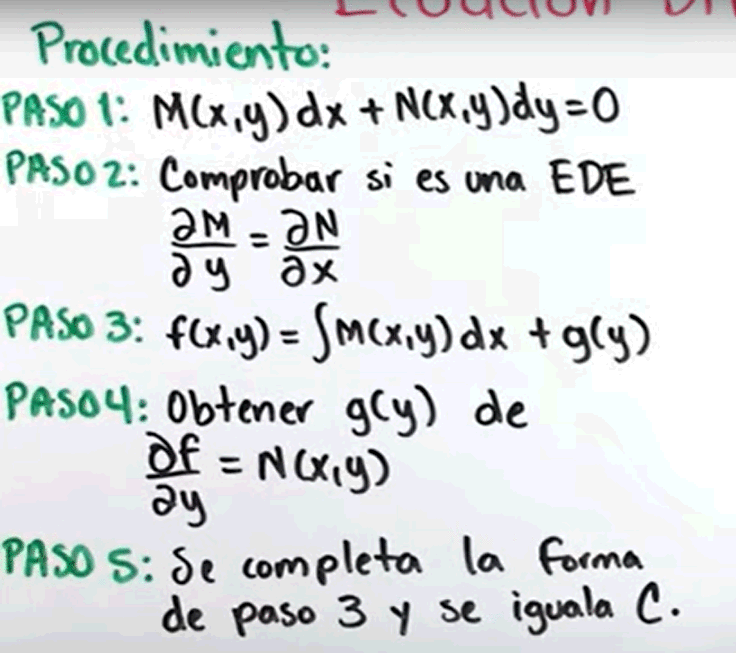 Procedimiento:
PASO 1: M(x,y)dx + N(x,y)dy=0
PASO 2: Comprobar si es una EDE
∂M/∂y = ∂N/∂x
PASO 3: f(x,y) = ∫M(x,y)dx + g(y)
PASO 4: Obtener g(y) de
∂f/∂y = N(x,y)
PASO 5: Se completa la forma
de paso 3 y se iguala C.